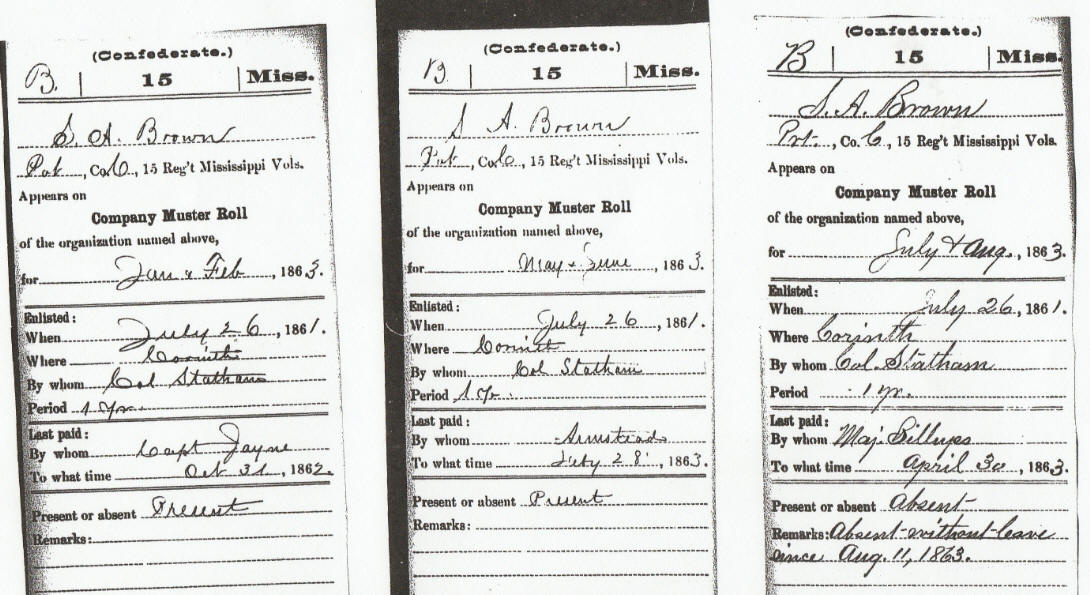 (Confederate.)
B. | 15 | Miss.
S. A. Brown
Pvt, Co. C, 15 Reg't Mississippi Vols.
Appears on
Company Muster Roll
of the organization named above,
for Jan & Feb, 1863.
Enlisted:
When July 26, 1861.
Where Corinth
By whom Col Statham
Period 1 Yr.
Last paid:
By whom Capt Jayne
To what time Oct 31, 1862.
Present or absent Present
Remarks:
(Confederate.)
B. | 15 | Miss.
S A. Brown
Pvt, Co. C, 15 Reg't Mississippi Vols.
Appears on
Company Muster Roll
of the organization named above,
for May & June, 1863.
Enlisted:
When July 26, 1861.
Where Corinth
By whom Col Statham
Period 1 Yr.
Last paid:
By whom Armstead
To what time Feby 28, 1863.
Present or absent Present
Remarks:
(Confederate.)
B | 15 | Miss.
S. A. Brown
Pvt., Co. C, 15 Reg't Mississippi Vols.
Appears on
Company Muster Roll
of the organization named above,
for July & Aug., 1863.
Enlisted:
When July 26, 1861.
Where Corinth
By whom Col. Statham
Period 1 yr.
Last paid:
By whom Maj. Billups
To what time April 30, 1863.
Present or absent Absent
Remarks: Absent without leave
since Aug. 11, 1863.